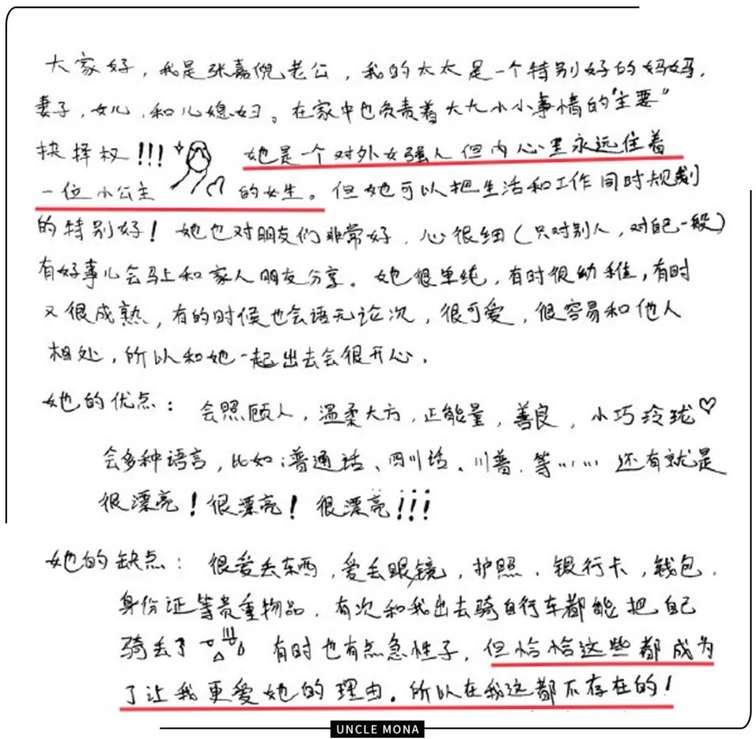 大家好，我是张嘉倪老公，我的太太是一个特别好的妈妈，
妻子，女儿，和儿媳妇。在家中也负责着大大小小事情的"主要"
抉择权!!! 她是一个对外女强人但内心里永远住着
一位小公主 的女生。但她可以把生活和工作同时规划
的特别好！她也对朋友们非常好，心很细（只对别人，对自己一般）
有好事儿会马上和家人朋友分享。她很单纯，有时很幼稚，有时
又很成熟，有的时候也会语无论次，很可爱，很容易和他人
相处，所以和她一起出去会很开心。
她的优点：会照顾人，温柔大方，正能量，善良，小巧玲珑♡
会多种语言，比如：普通话、四川话、川普、等…… 还有就是
很漂亮！很漂亮！很漂亮!!!
她的缺点：很爱丢东西，爱丢眼镜，护照，银行卡，钱包，
身份证等贵重物品，有次和我出去骑自行车都能把自己
骑丢了 有时也有点急性子，但恰恰这些都成为
了让我更爱她的理由。所以在我这都不存在的！
UNCLE MONA